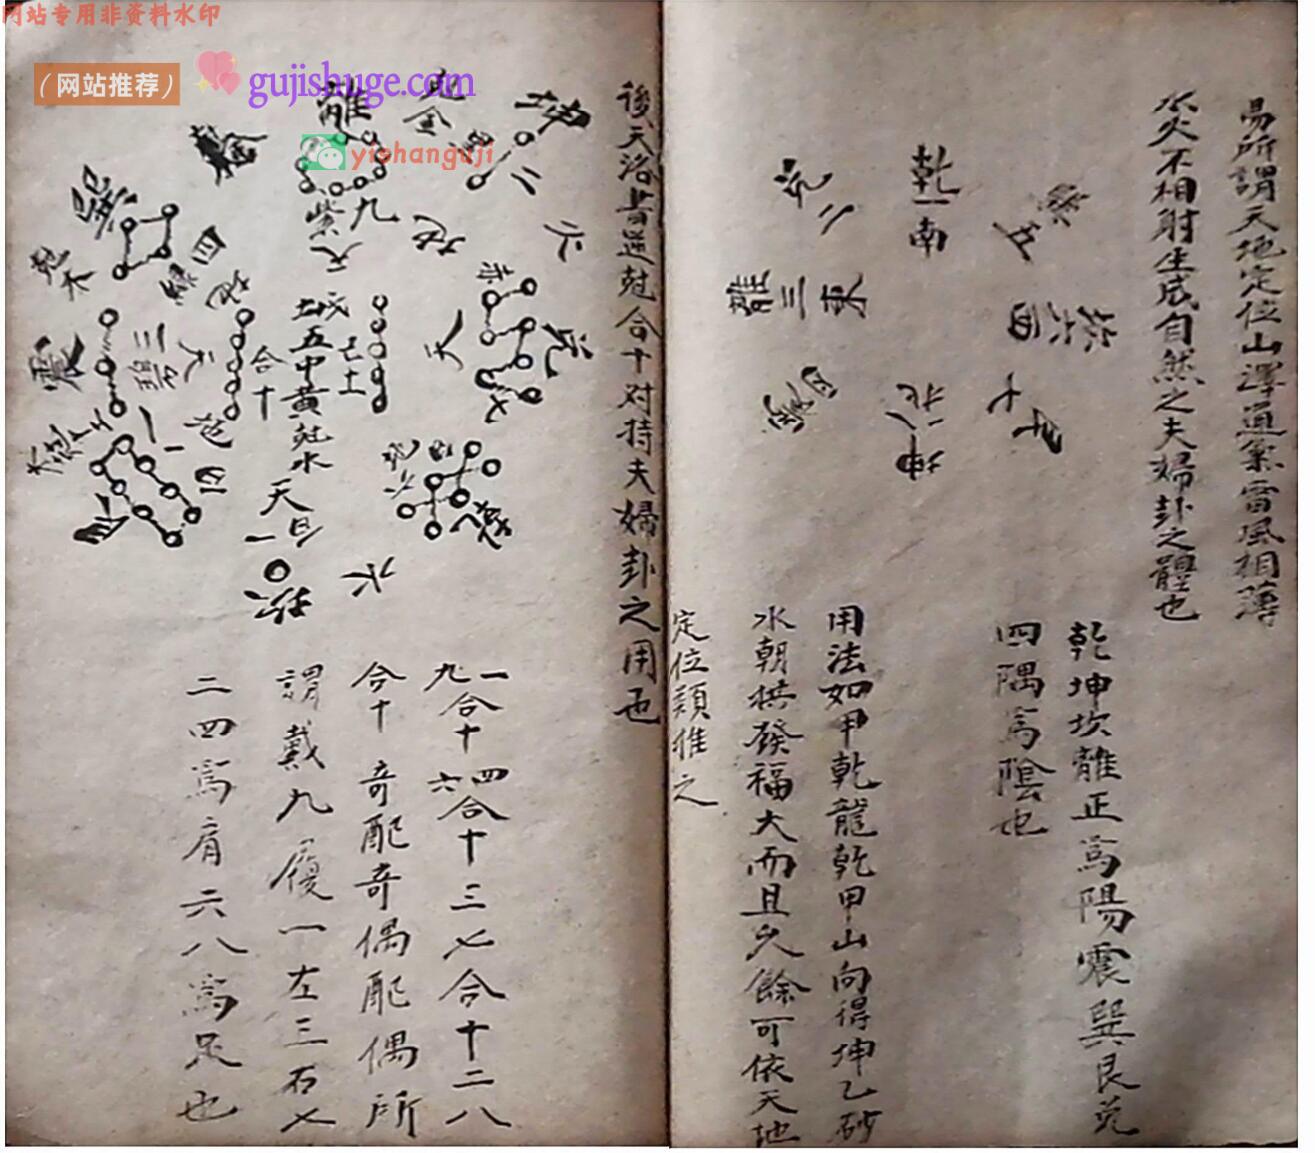 网站专用非资料水印
(网站推荐)
gujishuge.com
yishanguji
易所謂天地定位山澤通氣雷風相薄
水火不相射生成自然之夫婦卦之體也
乾一南
兌二
離三東
震四
巽五
坎六西
艮七
坤八北
乾坤坎離正為陽震巽艮兌
四隅為陰也
用法如甲乾龍乾甲山向得坤乙砂
水朝拱發福大而且久餘可依天地
定位類推之
後天洛書逆尅合十对持夫婦卦之用也
離
九
紫
坤
二
巽
四
綠
震
三
碧
天
地
合十
五中黃
土
兌
赤
乾
六
艮
坎
一
天
水
火
一九合十四六合十三七合十二八
合十奇配奇偶配偶所
謂戴九履一左三右七
二四為肩六八為足也